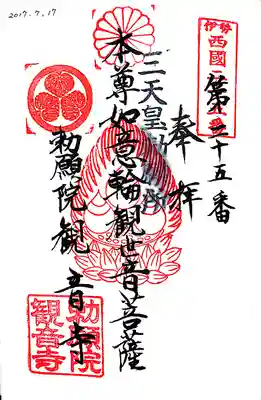 2017.7.17
伊勢
西國
第三十五番
奉拝
三天皇勅願所
本尊如意輪観世音菩薩
勅願院観音寺
勅願院
観音寺